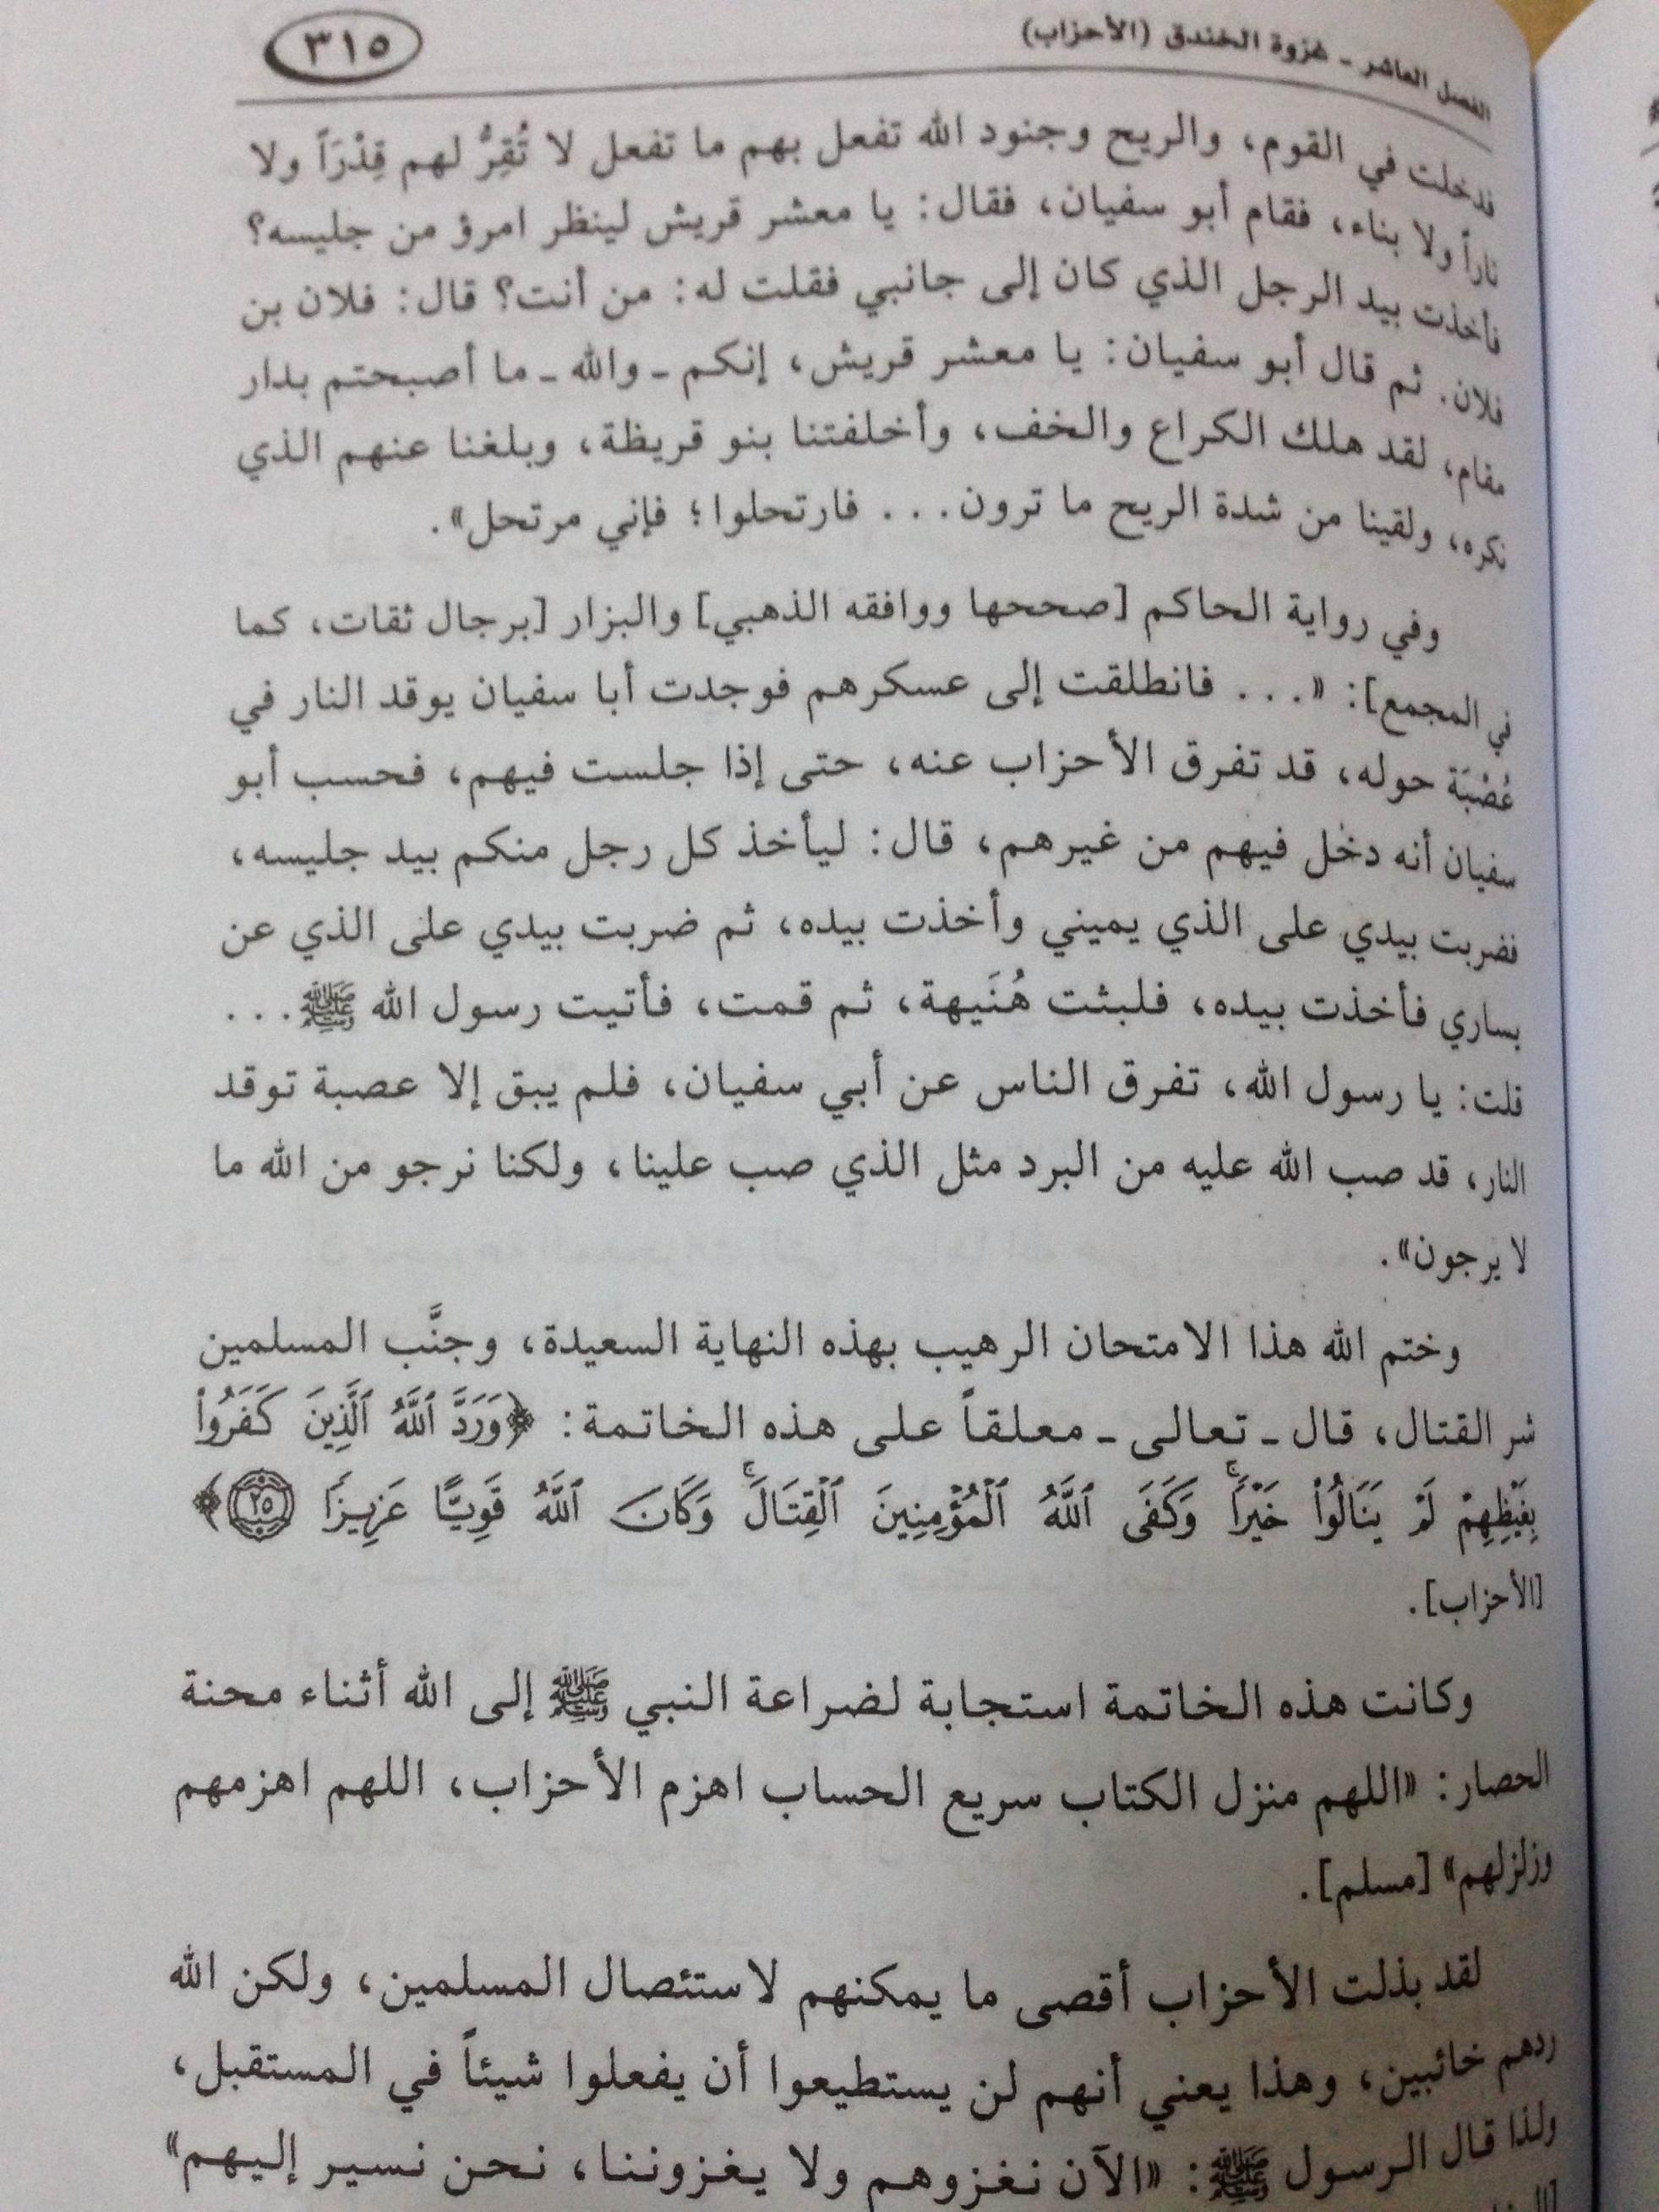 الفصل العاشر - غزوة الخندق (الأحزاب)
٣١٥
فدخلت في القوم، والريح وجنود الله تفعل بهم ما تفعل لا تُقِرُّ لهم قِدْرَاً ولا
ناراً ولا بناء، فقام أبو سفيان، فقال: يا معشر قريش لينظر امرؤ من جليسه؟
فأخذت بيد الرجل الذي كان إلى جانبي فقلت له: من أنت؟ قال: فلان بن
فلان. ثم قال أبو سفيان: يا معشر قريش، إنكم ـ والله ـ ما أصبحتم بدار
مقام، لقد هلك الكراع والخف، وأخلفتنا بنو قريظة، وبلغنا عنهم الذي
نكره، ولقينا من شدة الريح ما ترون... فارتحلوا؛ فإني مرتحل».
وفي رواية الحاكم [صححها ووافقه الذهبي] والبزار [برجال ثقات، كما
في المجمع]: «... فانطلقت إلى عسكرهم فوجدت أبا سفيان يوقد النار في
عُصْبَة حوله، قد تفرق الأحزاب عنه، حتى إذا جلست فيهم، فحسب أبو
سفيان أنه دخل فيهم من غيرهم، قال: ليأخذ كل رجل منكم بيد جليسه،
فضربت بيدي على الذي يميني وأخذت بيده، ثم ضربت بيدي على الذي عن
يساري فأخذت بيده، فلبثت هُنَيهة، ثم قمت، فأتيت رسول الله ﷺ...
قلت: يا رسول الله، تفرق الناس عن أبي سفيان، فلم يبق إلا عصبة توقد
النار، قد صب الله عليه من البرد مثل الذي صب علينا، ولكنا نرجو من الله ما
لا يرجون».
وختم الله هذا الامتحان الرهيب بهذه النهاية السعيدة، وجنَّب المسلمين
شر القتال، قال ـ تعالى ـ معلقاً على هذه الخاتمة: ﴿وَرَدَّ ٱللَّهُ ٱلَّذِينَ كَفَرُوا۟
بِغَيْظِهِمْ لَمْ يَنَالُوا۟ خَيْرًا ۚ وَكَفَى ٱللَّهُ ٱلْمُؤْمِنِينَ ٱلْقِتَالَ ۚ وَكَانَ ٱللَّهُ قَوِيًّا عَزِيزًا ٢٥﴾
[الأحزاب].
وكانت هذه الخاتمة استجابة لضراعة النبي ﷺ إلى الله أثناء محنة
الحصار: «اللهم منزل الكتاب سريع الحساب اهزم الأحزاب، اللهم اهزمهم
وزلزلهم» [مسلم].
لقد بذلت الأحزاب أقصى ما يمكنهم لاستئصال المسلمين، ولكن الله
ردهم خائبين، وهذا يعني أنهم لن يستطيعوا أن يفعلوا شيئاً في المستقبل،
ولذا قال الرسول ﷺ: «الآن نغزوهم ولا يغزوننا، نحن نسير إليهم»